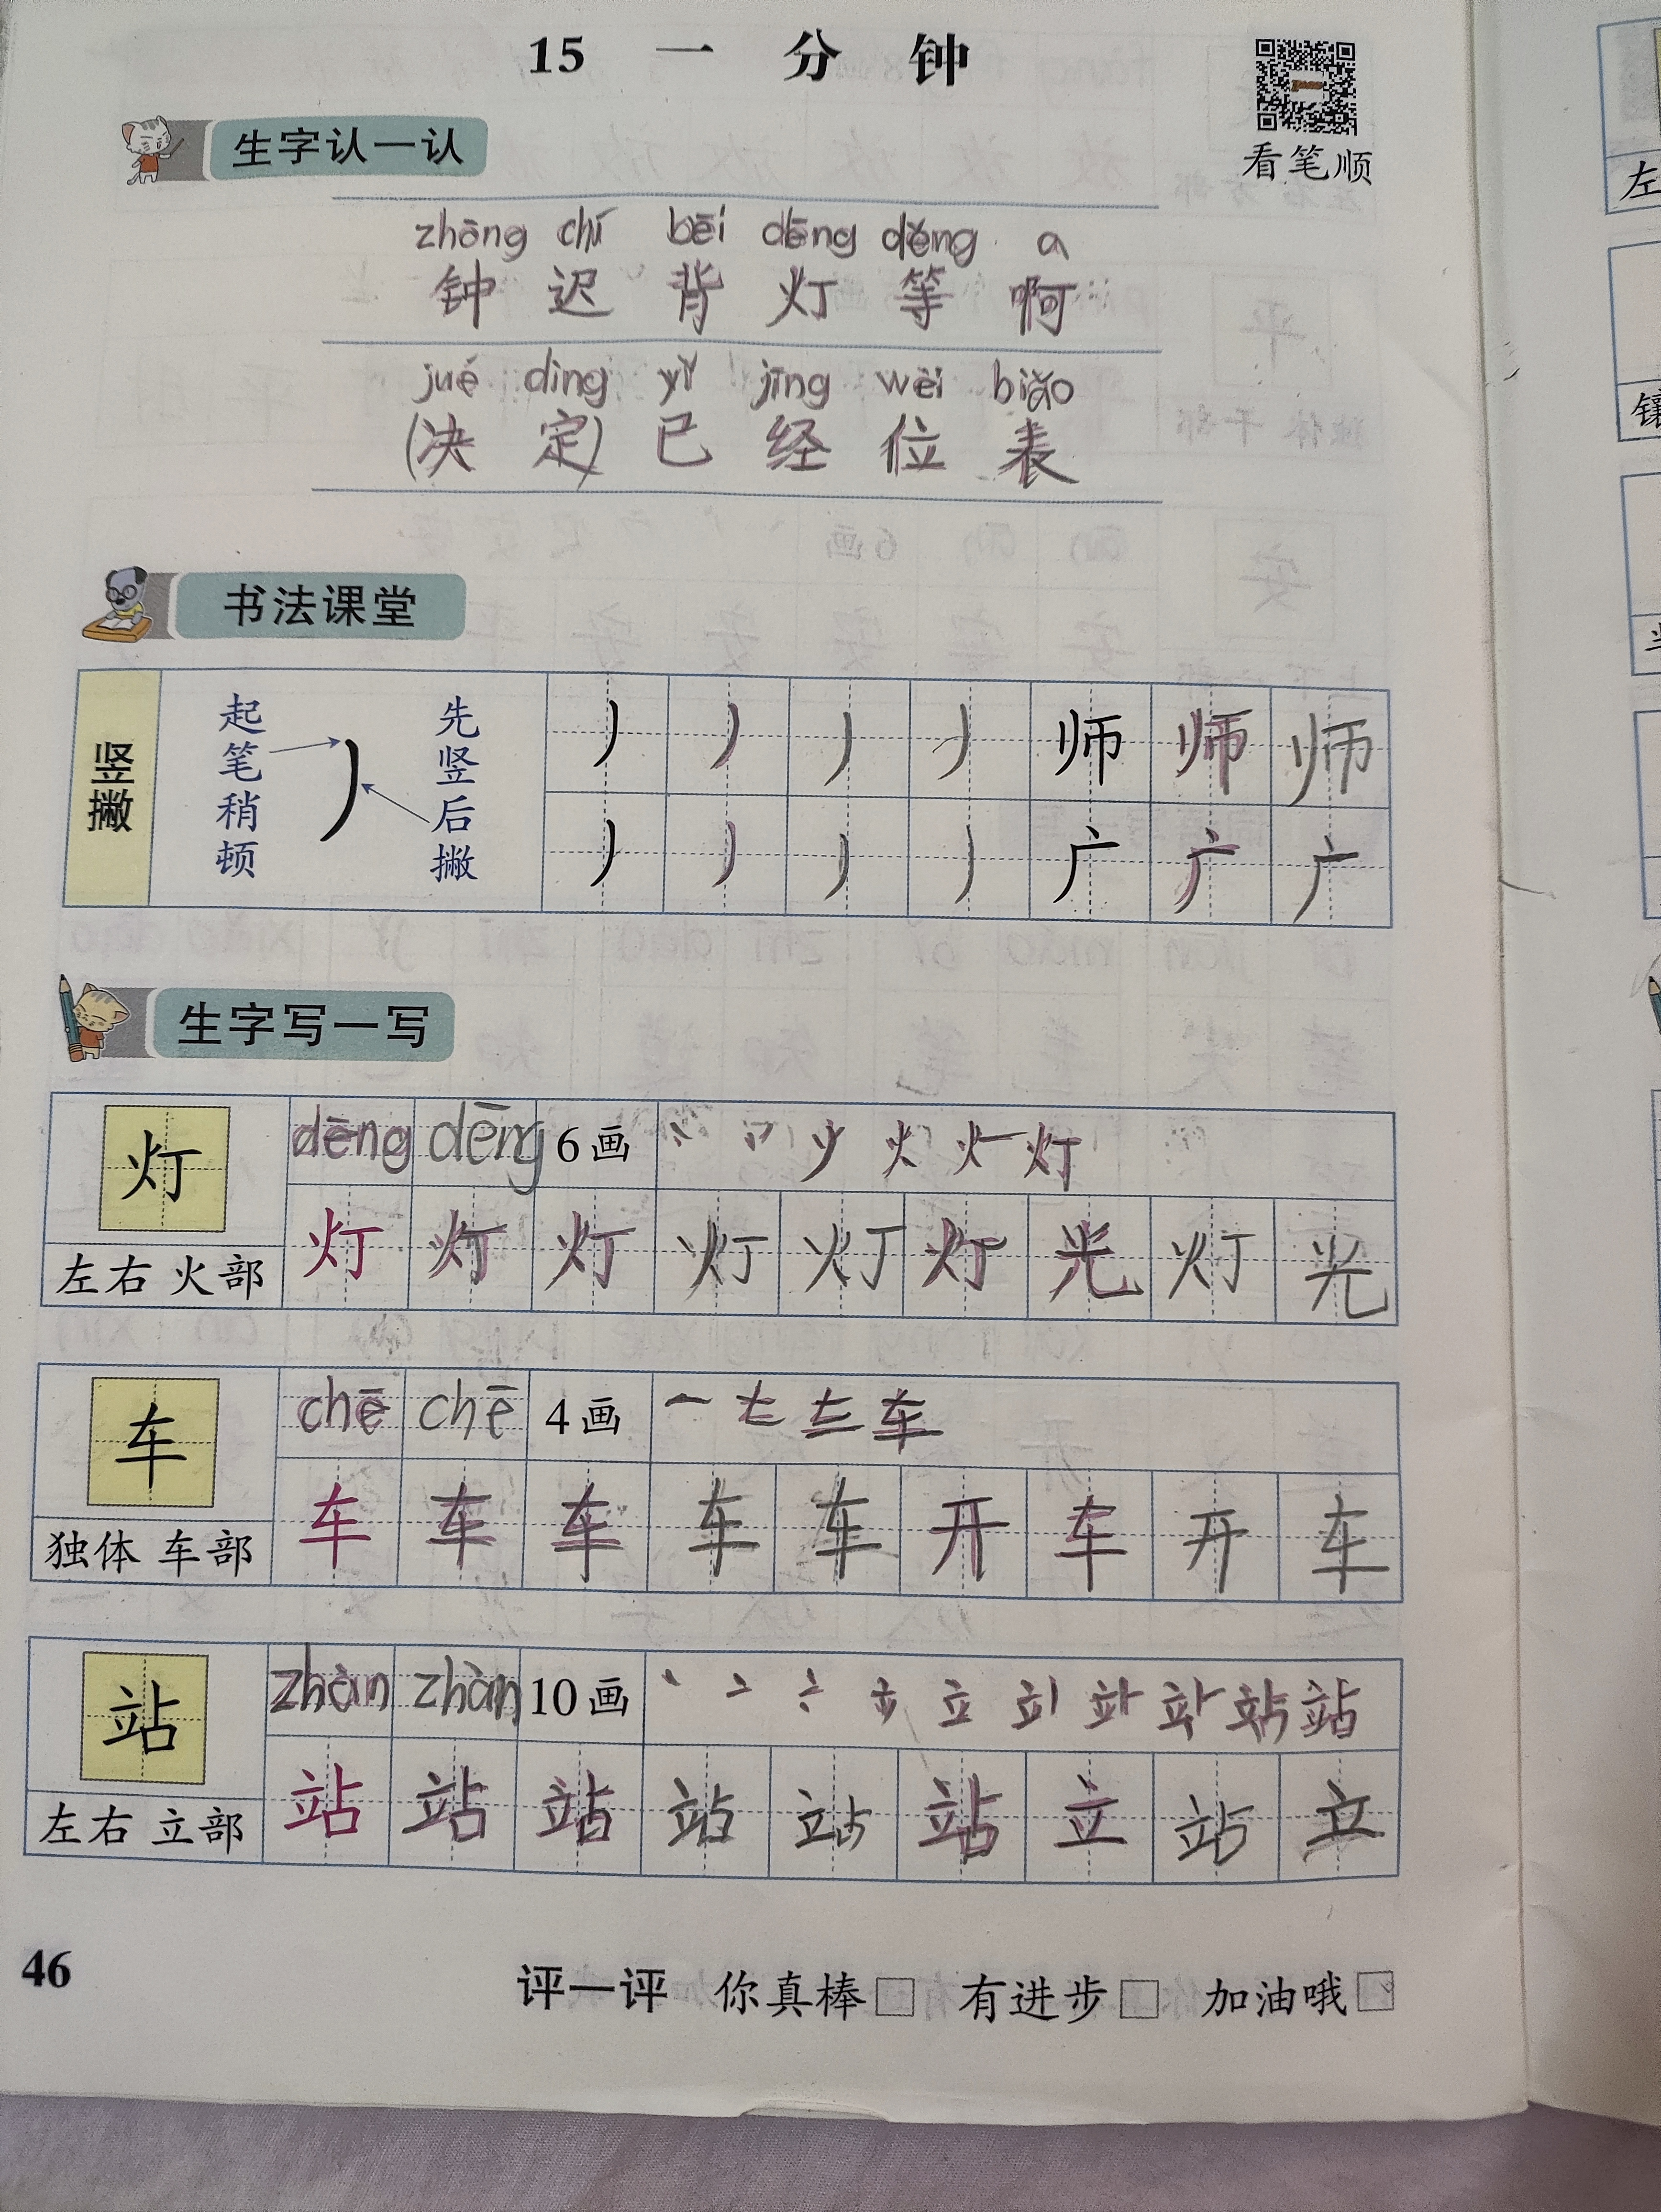 15 一 分 钟
看笔顺
生字认一认
zhōng chí bēi dēng děng a
钟 迟 背 灯 等 啊
jué dìng yǐ jīng wèi biǎo
(决 定) 已 经 位 表
书法课堂
竖撇 起笔稍顿 先竖后撇 丿 丿 丿 丿 师 师 师
丿 丿 丿 丿 广 广 广
生字写一写
灯 dēng dēng 6画 灯
左右 火部 灯 灯 灯 灯 灯 灯 光 灯 光
车 chē chē 4画 一 车
独体 车部 车 车 车 车 车 开 车 开 车
站 zhàn zhàn 10画 丶 亠 立 站
左右 立部 站 站 站 站 站 站 立 站 立
46 评一评 你真棒□ 有进步□ 加油哦□